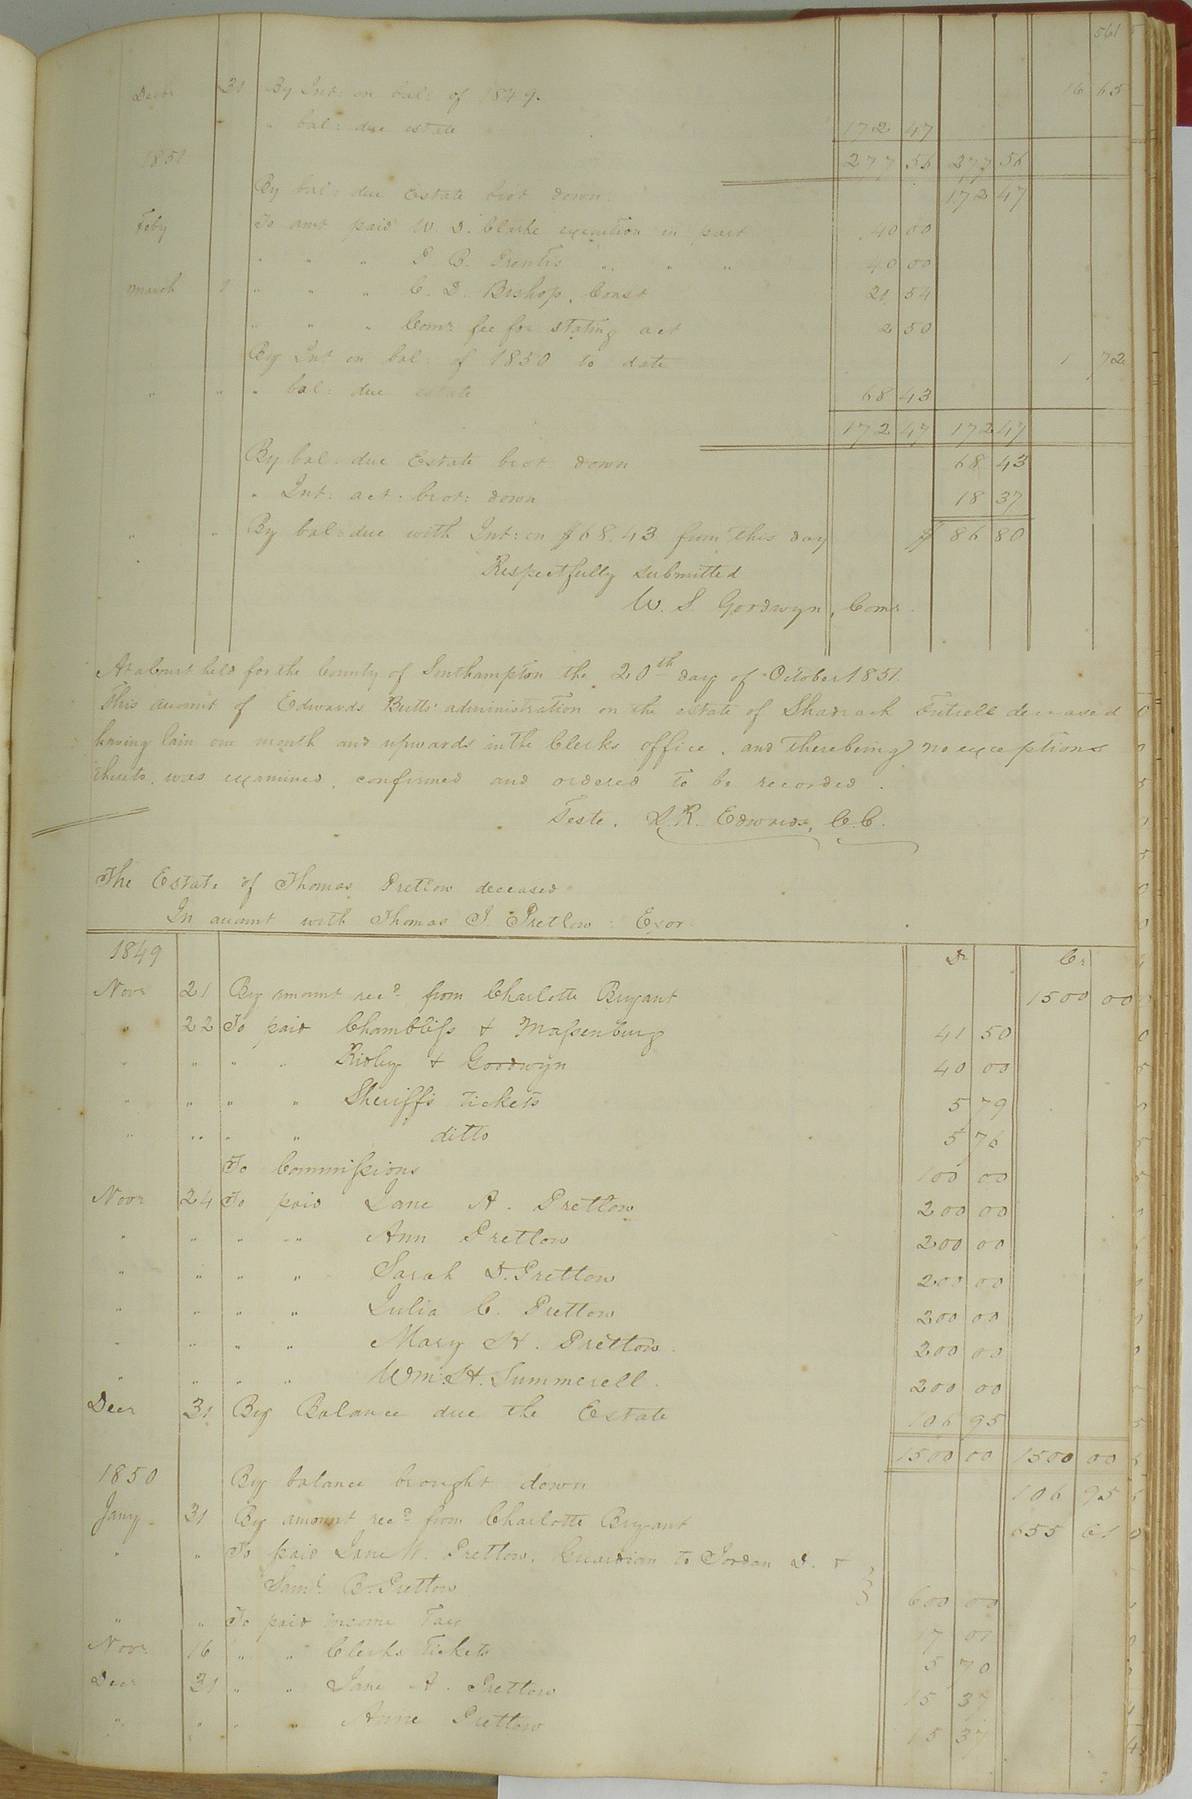 561
Decr 31 By Int: on bal: of 1849. 16 65
" bal: due estate 172 47
1851 277 56 277 56
By bal: due Estate brot down 172 47
Feby To amt paid W. D. Clarke execution in part 40 00
" " " P. B. Prentis " " " 40 00
March 1 " " " C. D. Bishop, Const 21 54
" " " Comr fee for stating act 2 50
By Int on bal: of 1850 to date 1 72
" " " bal: due estate 68 43
172 47 172 47
By bal: due Estate brot down 68 43
" Int: act: brot: down 18 37
" " By bal: due with Int: on $68.43 from this day $ 86 80
Respectfully submitted
W. S. Goodwyn, Comr.
At a Court held for the County of Southampton the 20th day of October 1851
This account of Edwards Butts' administration on the estate of Shadrach Futrell deceased
having lain one month and upwards in the Clerks office, and there being no exceptions
thereto, was examined, confirmed and ordered to be recorded.
Teste. L. R. Edwards, C.C.
The Estate of Thomas Pretlow deceased
In account with Thomas J. Pretlow Exor
1849 Dr Cr
Novr 21 By amount recd from Charlotte Bryant 1500 00
" 22 To paid Chambliss & Massenburg 41 50
" " " " Ridley & Goodwyn 40 00
" " " " Sheriffs tickets 5 79
" " " " ditto 5 76
To Commissions 100 00
Novr 24 To paid Jane A. Pretlow 200 00
" " " " Ann Pretlow 200 00
" " " " Sarah D. Pretlow 200 00
" " " " Julia C. Pretlow 200 00
" " " " Mary H. Pretlow 200 00
" " " " Wm. H. Summerell. 200 00
Decr 31 By Balance due the Estate 106 95
1500 00 1500 00
1850 By balance brought down 106 95
Jany 31 By amount recd from Charlotte Bryant 655 61
" " To paid Jane A. Pretlow, Guardian to Jordan D. &
Saml. B. Pretlow 600 00
" " To paid income Tax 17 01
Novr 16 " " Clerks Tickets 5 70
Decr 31 " " Jane A. Pretlow 15 37
" " " " Anne Pretlow 15 37